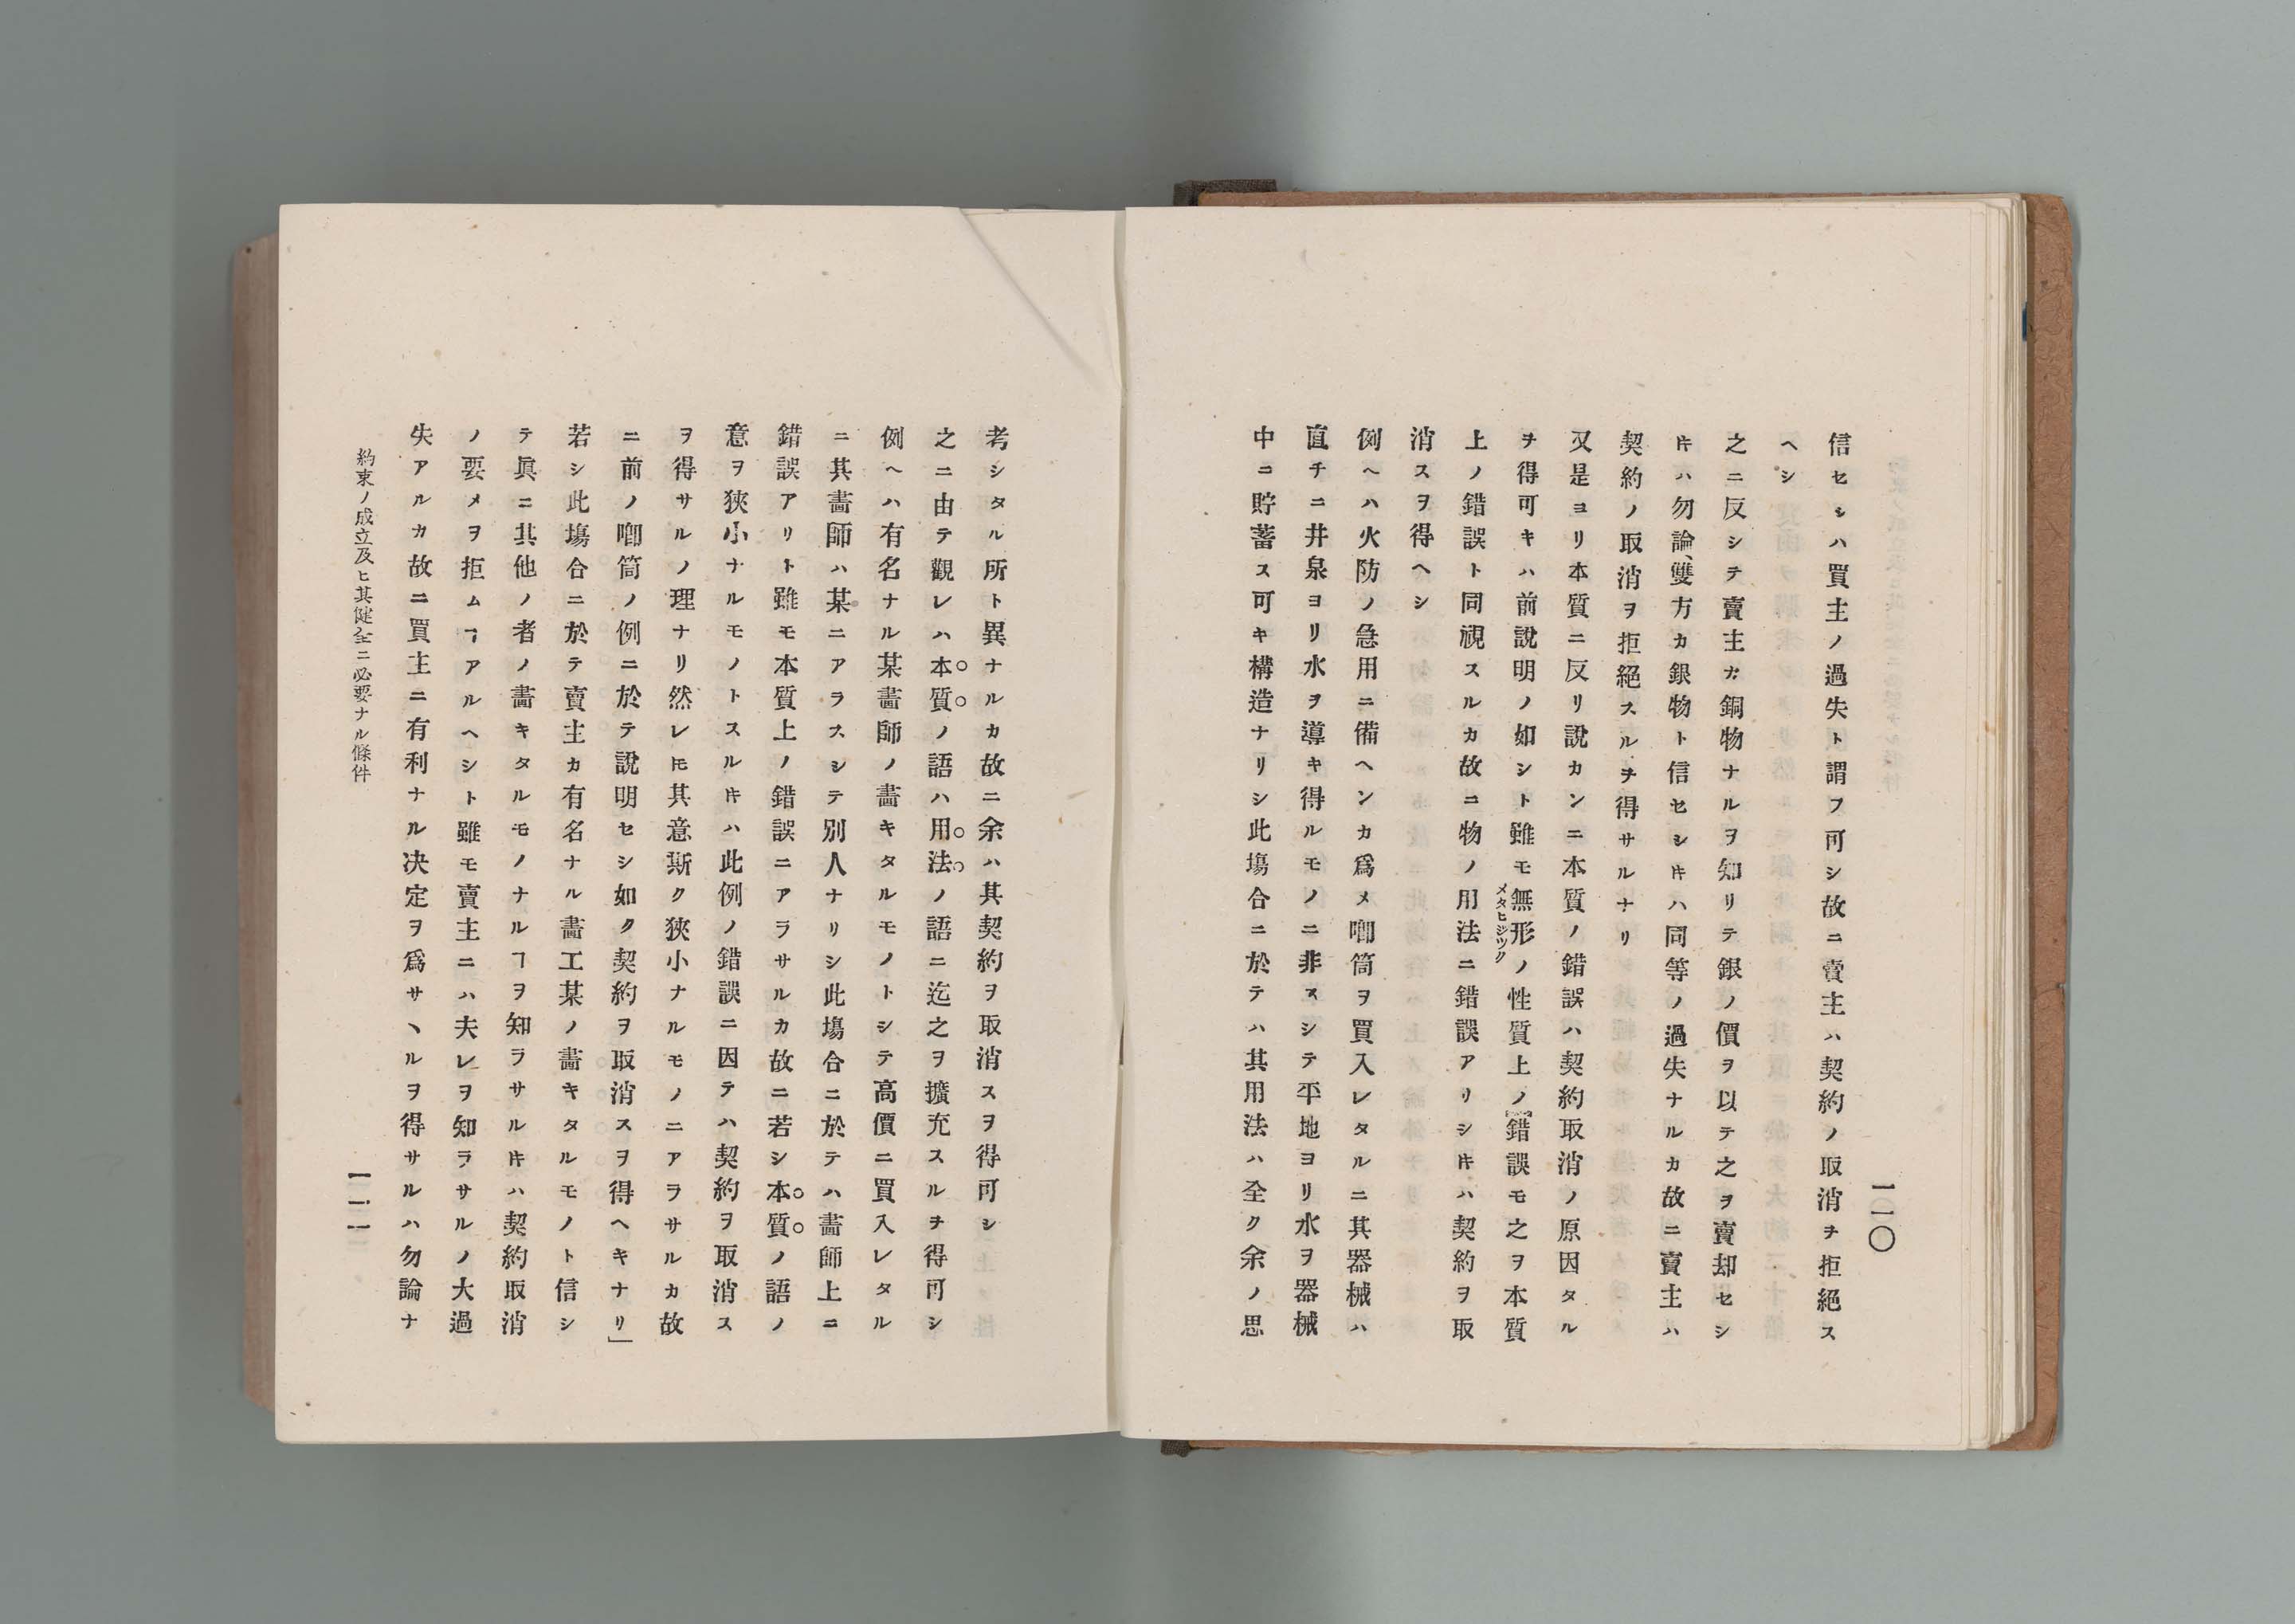 一一〇
信セシハ買主ノ過失ト謂フ可シ故ニ賣主ハ契約ノ取消ヲ拒絕ス
ヘシ
之ニ反シテ賣主カ銅物ナルヲ知リテ銀ノ價ヲ以テ之ヲ賣却セシ
𪜈ハ勿論、雙方カ銀物ト信セシ𪜈ハ同等ノ過失ナルカ故ニ賣主ハ
契約ノ取消ヲ拒絕スルヲ得サルナリ
又是ヨリ本質ニ反リ說カンニ本質ノ錯誤ハ契約取消ノ原因タル
ヲ得可キハ前說明ノ如シト雖モ無形ノ性質上ノ錯誤モ之ヲ本質
メタヒシツク
上ノ錯誤ト同視スルカ故ニ物ノ用法ニ錯誤アリシ𪜈ハ契約ヲ取
消スヲ得ヘシ
例ヘハ火防ノ急用ニ備ヘンカ爲メ喞筒ヲ買入レタルニ其器械ハ
直チニ井泉ヨリ水ヲ導キ得ルモノニ非スシテ平地ヨリ水ヲ器械
中ニ貯蓄ス可キ構造ナリシ此塲合ニ於テハ其用法ハ全ク余ノ思
考シタル所ト異ナルカ故ニ余ハ其契約ヲ取消スヲ得可シ
之ニ由テ觀レハ本質ノ語ハ用法ノ語ニ迄之ヲ擴充スルヲ得可シ
例ヘハ有名ナル某畵師ノ畵キタルモノトシテ高價ニ買入レタル
ニ其畵師ハ某ニアラスシテ別人ナリシ此塲合ニ於テハ畵師上ニ
錯誤アリト雖モ本質上ノ錯誤ニアラサルカ故ニ若シ本質ノ語ノ
意ヲ狹小ナルモノトスル𪜈ハ此例ノ錯誤ニ因テハ契約ヲ取消ス
ヲ得サルノ理ナリ然レ𪜈其意斯ク狹小ナルモノニアラサルカ故
ニ前ノ喞筒ノ例ニ於テ說明セシ如ク契約ヲ取消スヲ得ヘキナリ」
若シ此塲合ニ於テ賣主カ有名ナル畵工某ノ畵キタルモノト信シ
テ眞ニ其他ノ者ノ畵キタルモノナルヿヲ知ラサル𪜈ハ契約取消
ノ要メヲ拒ムヿアルヘシト雖モ賣主ニハ夫レヲ知ラサルノ大過
失アルカ故ニ買主ニ有利ナル决定ヲ爲サヽルヲ得サルハ勿論ナ
約束ノ成立及ヒ其健全ニ必要ナル條件
一一一